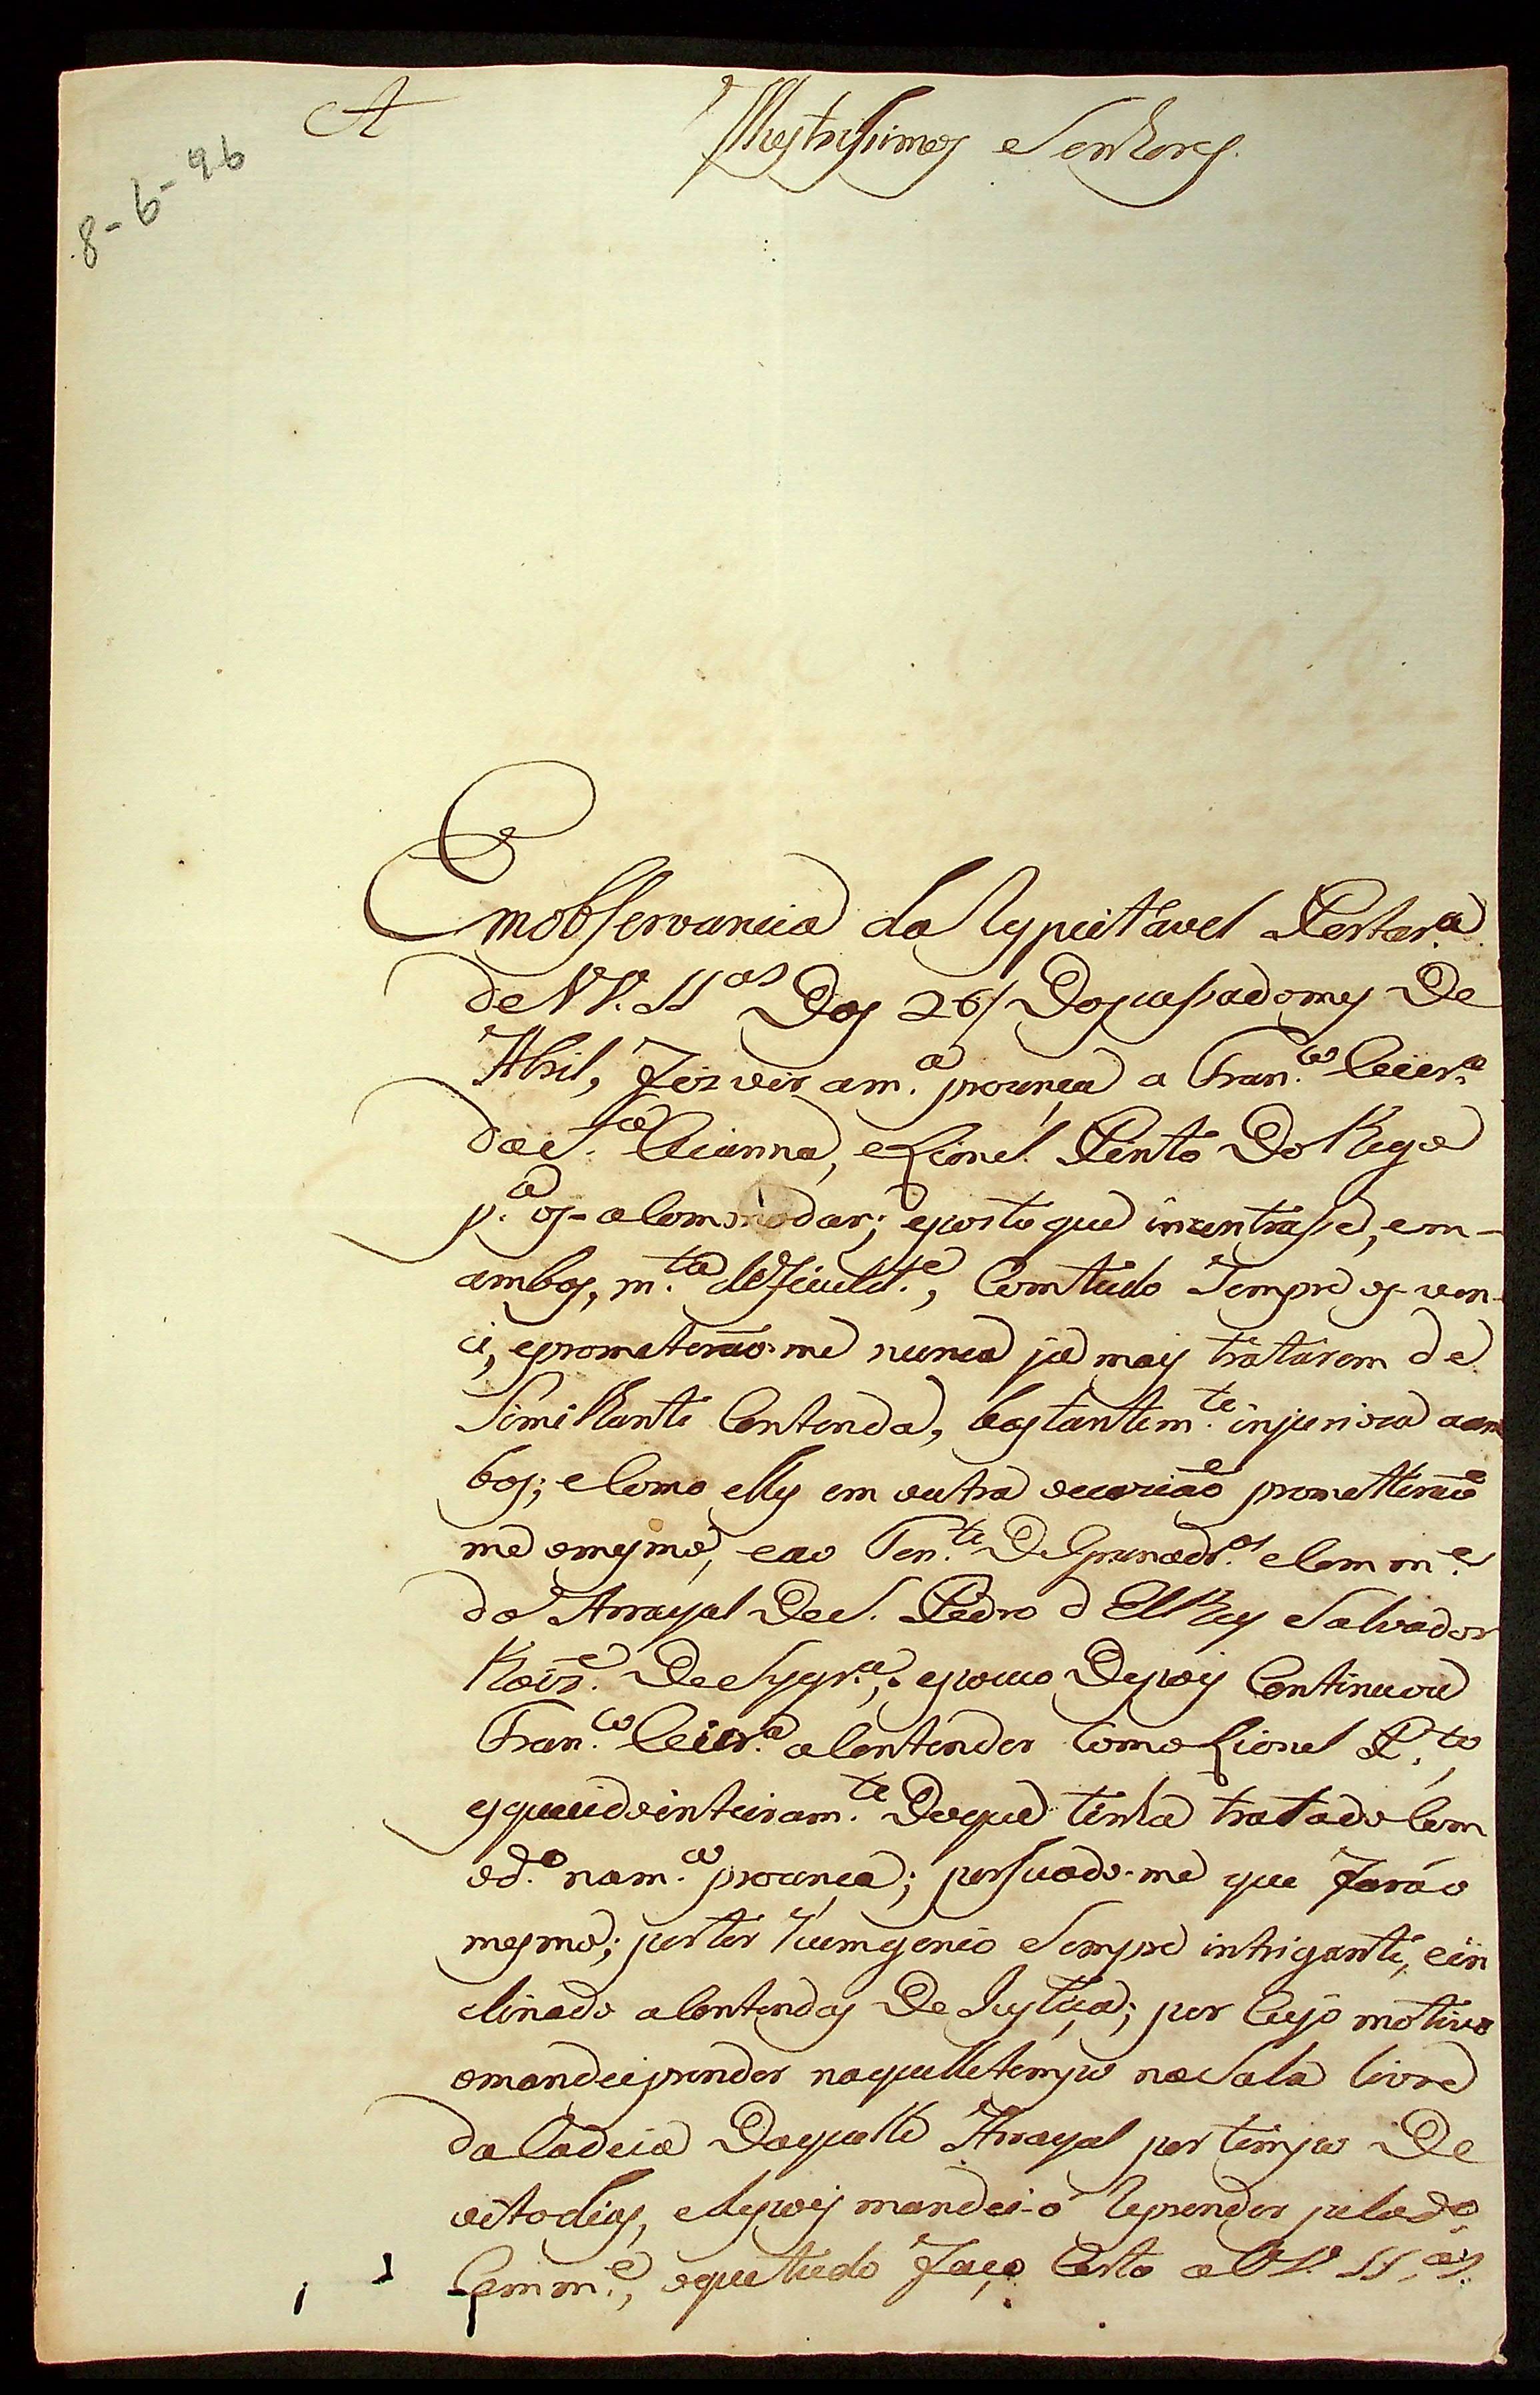 A
8-6-96
Illustrissimos Senhores.
Em observancia da respeitavel Portar.ª
de VV. SS.as Dos 26/ Do passado mes De
Abril, fiz vir a m.ª prezença a Fran.co Vieir.ª
da S.ª Vianna, e Lionel Pinto Do Rego
p.ª os-acommodar; e posto que incontrasse, em-
ambos, m.ta deficuld.e, Comtudo Sempre os-ven-
ci, e prometerão-me nunca ja mais tratarem de
Similhante Contenda, bastantem.te injurioza a am
bos; e Como elles em outra occazião prometterão
me o mesmo, e ao Ten.te De Granadr.os e Comm.e
do Arrayal De S. Pedro d El Rey Salvador
Roiz.' De Syqr.ª, e pouco Depois Continuou
Fran.co Vieir.ª a Contender Com o Lionel P.to,
esquecido inteiram.te Do que tinha tratado Com
o d.º na m.ª prezença; persuado-me que fará o
mesmo; por ter hum genio Sempre intrigante, e in
clinado a Contendas De Justiça; por Cujo motivo
o mandei prender naquelle tempo na Sala livre
da Cadeia Daquelle Arrayal por tempo De
oito dias, e depois mandei-o reprender pelo d.º
Comm.e, o que tudo faço Certo a VV. SS.as